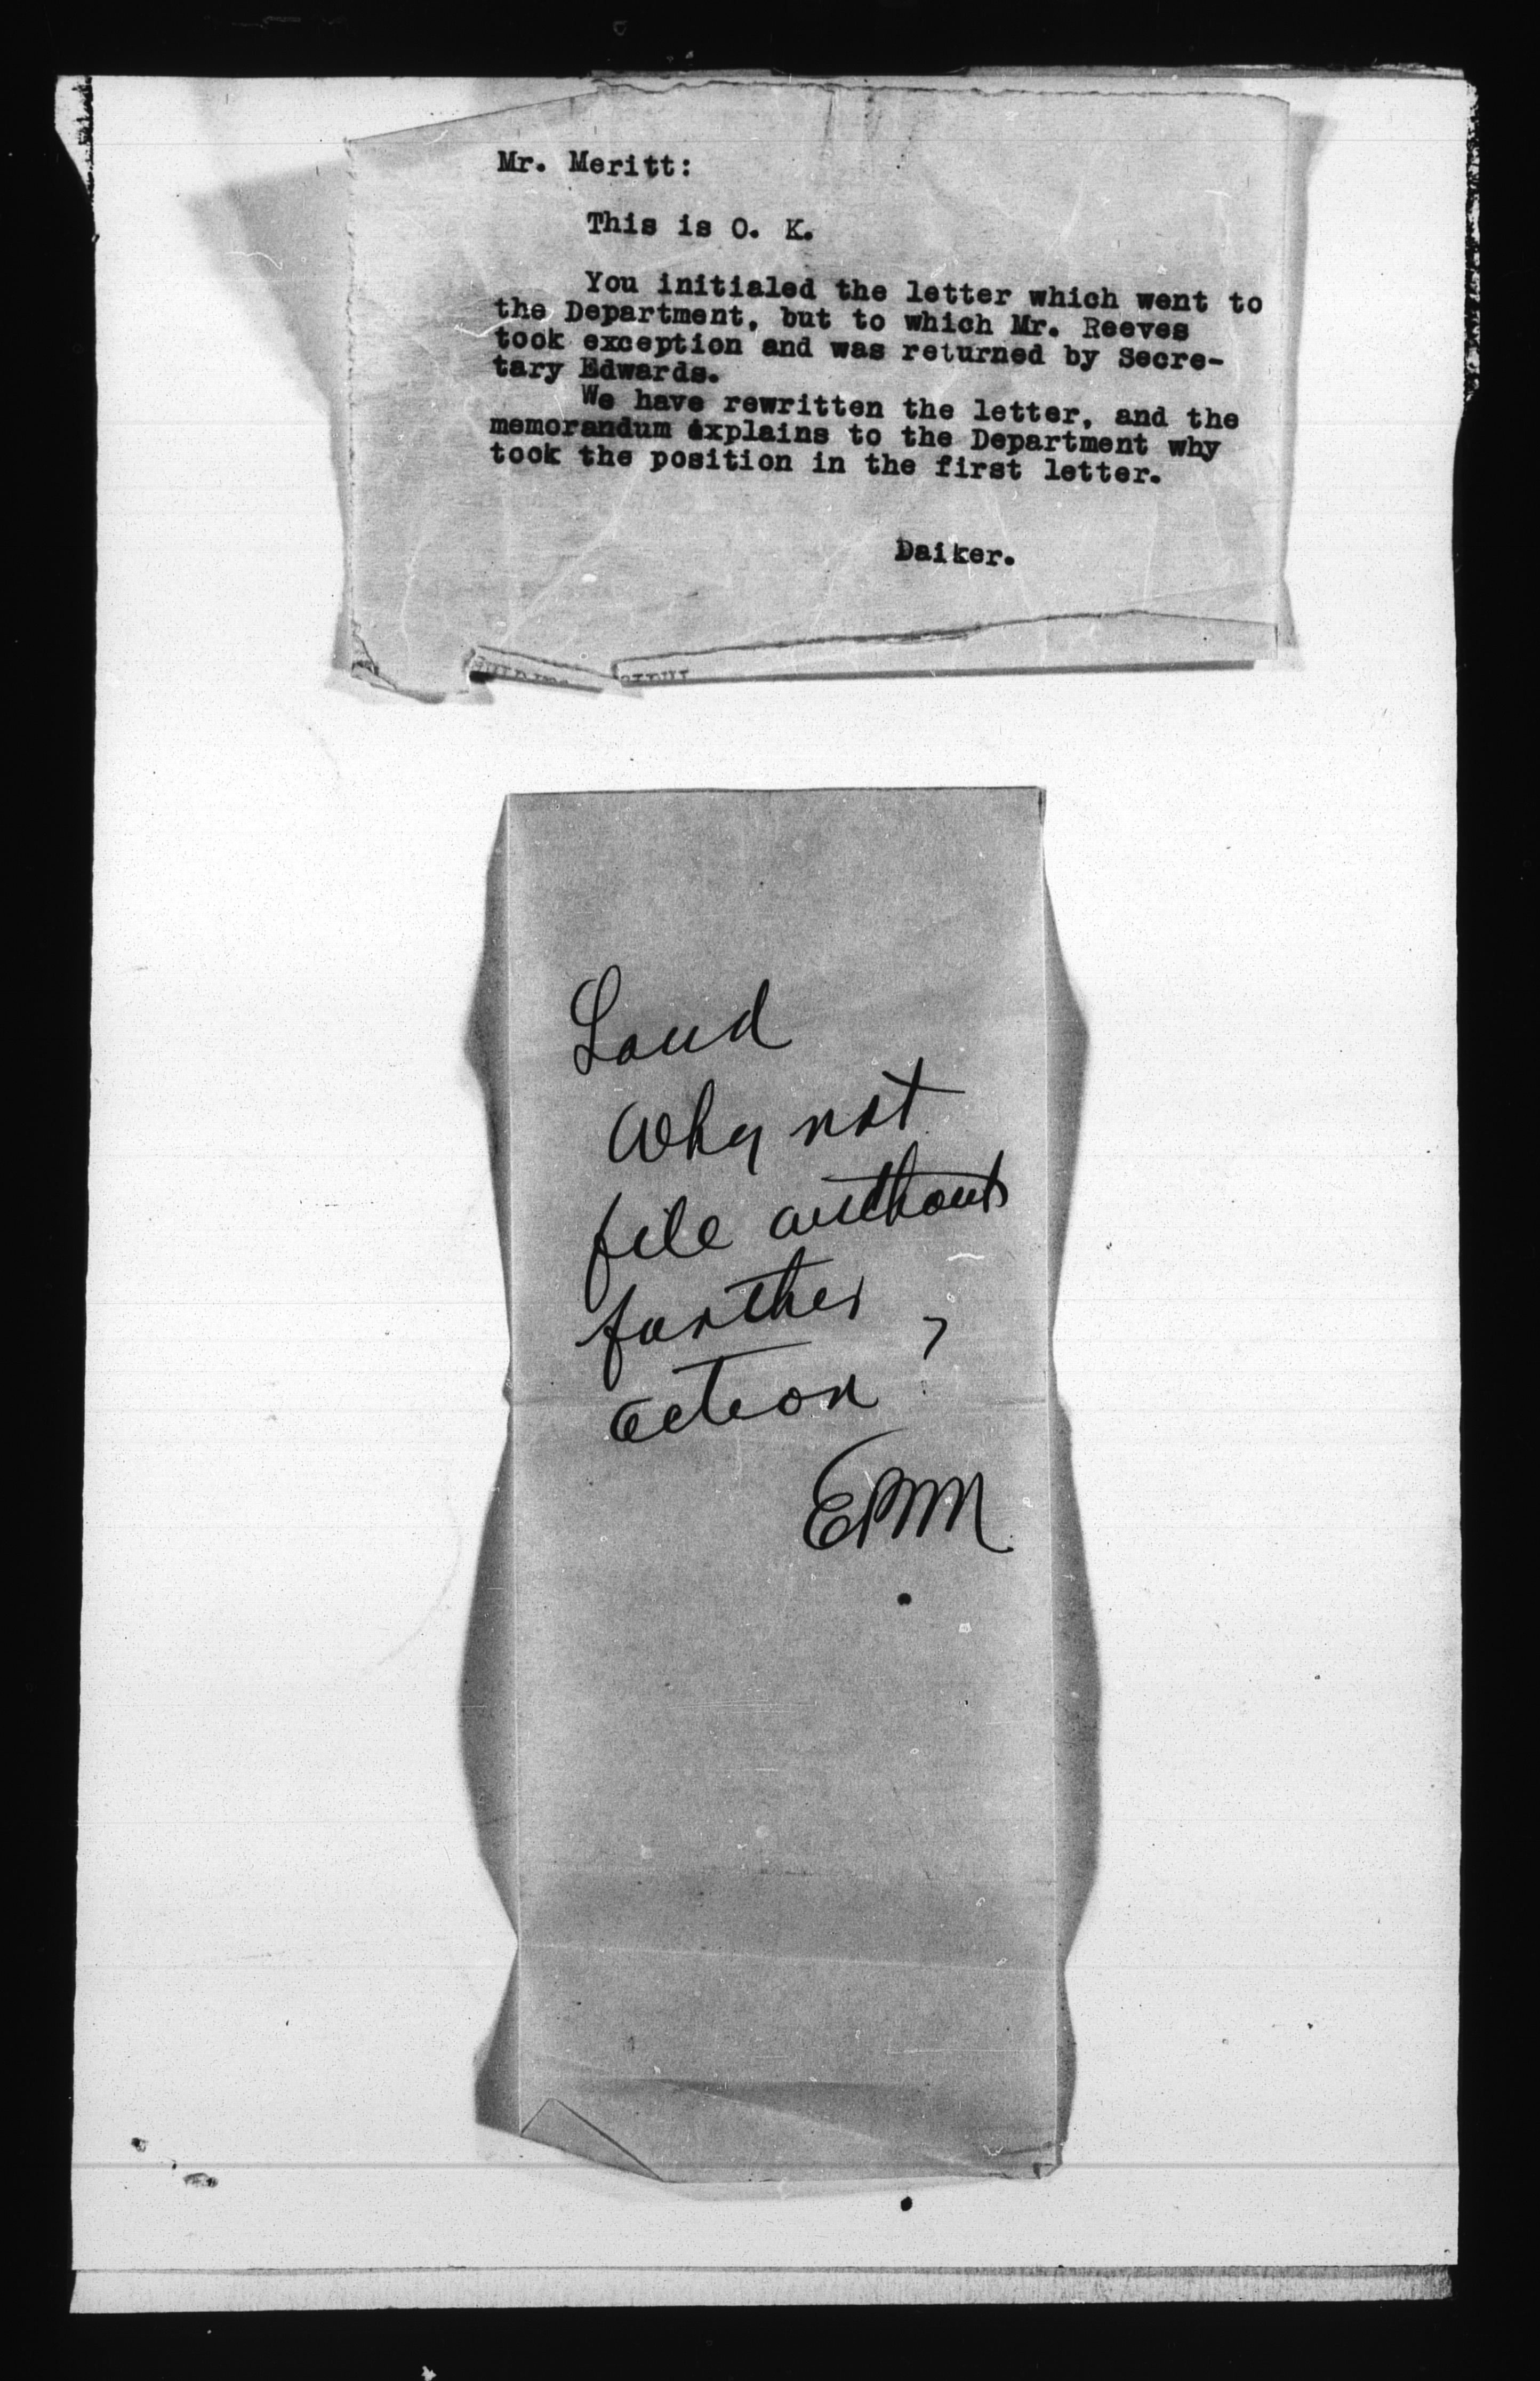 Mr. Meritt:
This is O. K.
You initialed the letter which went to
the Department, but to which Mr. Reeves
took exception and was returned by Secre-
tary Edwards.
We have rewritten the letter, and the
memorandum explains to the Department why
took the position in the first letter.
Daiker.
Land
Why not
file without
further
action ?
EBM